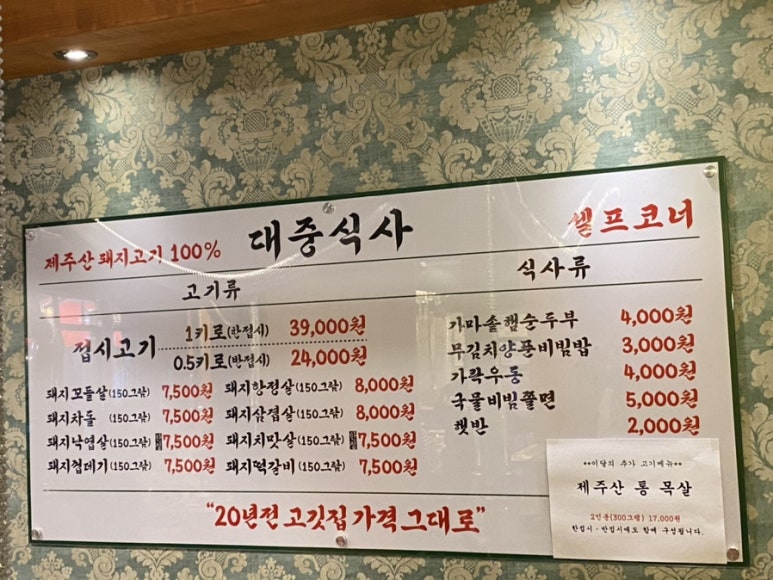 제주산 돼지고기 100%
대중식사
셀프코너
고기류
접시고기
1키로(한접시) 39,000원
0.5키로(반접시) 24,000원
돼지꼬들살(150그람) 7,500원
돼지항정살(150그람) 8,000원
돼지차돌 (150그람) 7,500원
돼지삼겹살(150그람) 8,000원
돼지낙엽살(150그람) 7,500원
돼지치맛살(150그람) 7,500원
돼지껍데기(150그람) 7,500원
돼지떡갈비(150그람) 7,500원
식사류
가마솥햅순두부 4,000원
무김치양푼비빔밥 3,000원
가락우동 4,000원
국물비빔쫄면 5,000원
햇반 2,000원
**이달의 추가 고기메뉴**
제주산 통 목살
2인분(300그램) 17,000원
한접시·반접시에도 함께 구성됩니다.
"20년전 고깃집 가격 그대로"